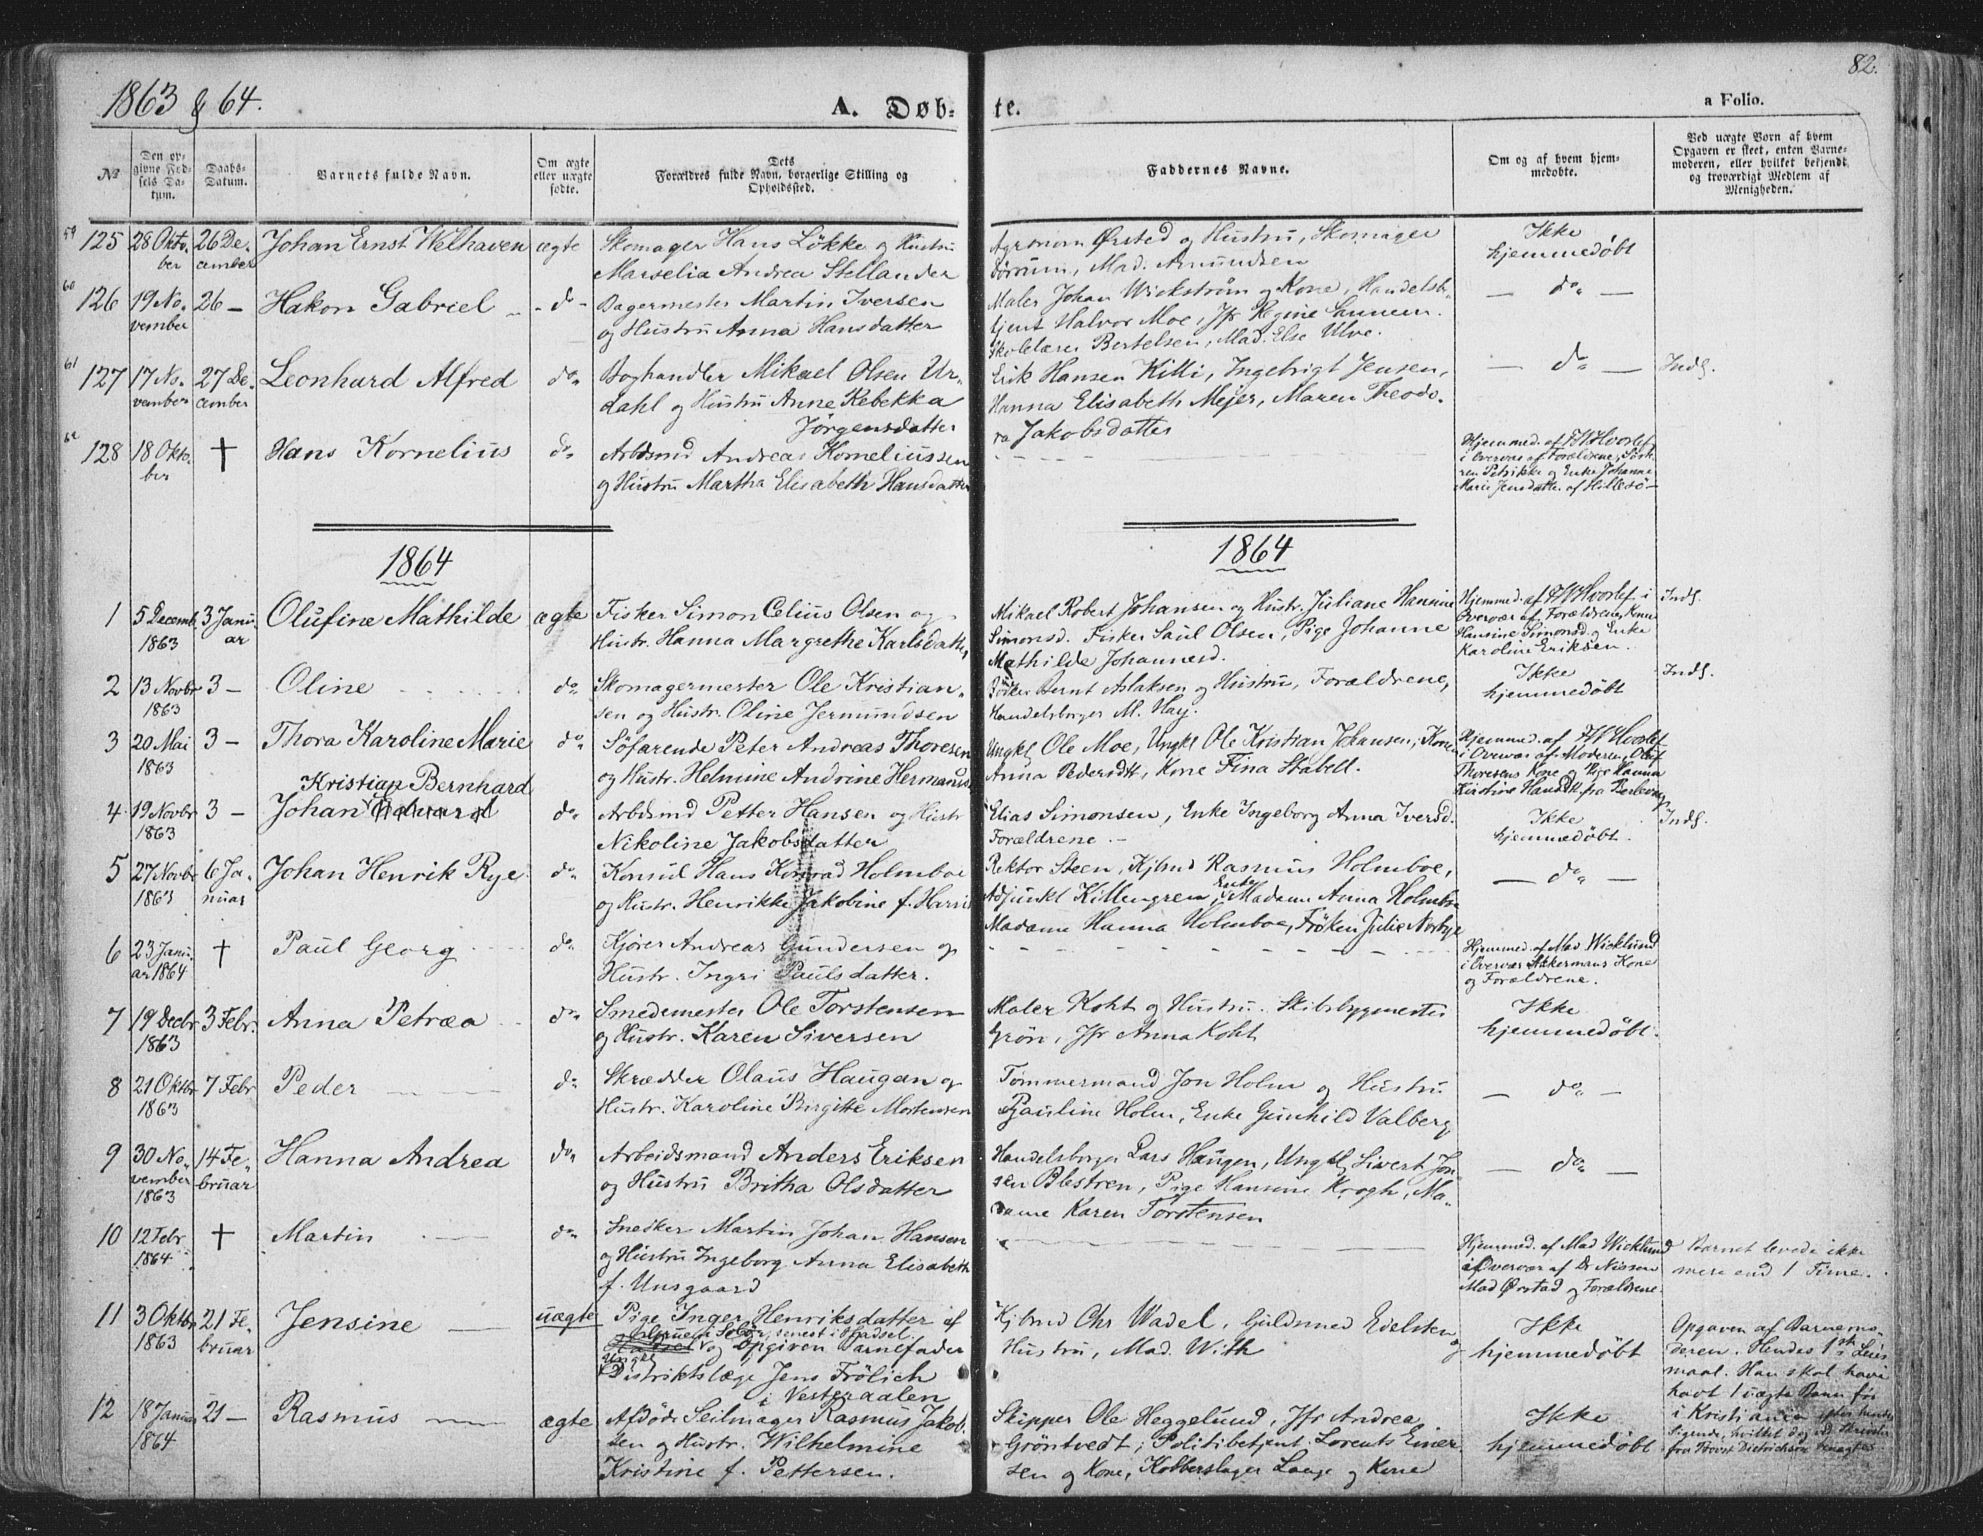 1863 & 64.
A. Døb-
te.
a Folio.
82.
No
Den op-
givne Fød-
sels Da-
tum.
Daabs-
Datum.
Barnets fulde Navn.
Om ægte
eller uægte
fødte.
Dets
Forældres fulde Navn, borgerlige Stilling og
Opholdssted.
Faddernes Navne.
Om og af hvem hjem-
medøbte.
Ved uægte Børn af hvem
Opgaven er skeet, enten Barne-
moderen, eller hvilket bekjendt
og troværdigt Medlem af
Menigheden.
59
125 28 Okto-
ber
26 De-
cember
Johan Ernst Welhaven
ægte
Skomager Hans Løkke og Hustru
Marselia Andrea Stellander
Agronom Ørsted og Hustru, Skomager
Dørrum, Mad. Amundsen
Ikke
hjemmedøbt
60
126 19 No-
vember
26 –
Hakon Gabriel
do
Bagermester Martin Iversen
og Hustru Anna Hansdatter
Maler Johan Wickstrøm og Kone, Handelsb-
tjent Halvor Moe, Jfr Regine
Skolelærer Bertelsen, Mad. Else Ulve.
do
61
127 17 No-
vember
27 De-
cember
Leonhard Alfred
do
Boghandler Mikael Olsen Ur-
dahl og Hustru Anne Rebekka
Jørgensdatter
Erik Hansen Killi, Ingebrigt Jensen,
Hanna Elisabeth Mejer, Maren Theodo-
ra Jakobsdatter
do
Inds.
62
128 18 Okto-
ber
†
Hans Kornelius
do
Arbdsmd Andreas Korneliussen
og Hustru Martha Elisabeth Hansdatter
Hjemmed. af FW Hvoslef
i Overvær af Forældrene,
Petrikke og Enke Johanne
Marie Jensdatter af Hillesø
1864
1864
1 5 Decemb.
1863
3 Janu-
ar
Olufine Mathilde
ægte
Fisker Simon Celius Olsen og
Hustr. Hanna Margrethe Karlsdatter
Mikael Robert Johansen og Hustr. Juliane Hansine
Simonsd. Fisker Saul Olsen, Pige Johanne
Mathilde Johannesd.
Hjemmed. af FW Hvoslef i
Overvær af Forældrene, Kone
Hansine Simonsd. og Enke
Karoline Eriksen.
Inds.
2 13 Novbr
1863
3 –
Oline
do
Skomagermester Ole Kristian-
sen og Hustr. Oline Jermundsen
Bødker Bernt Aslaksen og Hustru, Forældrene,
Handelsborger M. Hay.
Ikke
hjemmedøbt
Inds.
3 20 Mai
1863
3 –
Thora Karoline Marie
do
Søfarende Peter Andreas Thoresen
og Hustr. Helmine Andrine Hermans
Ungkl Ole Moe, Ungkl Ole Kristian Johansen, Kone
Anna Pedersdtr, Kone Fina Stabell.
Hjemmed. af FW Hvoslef
i Overvær af Moderen,
Thoresens Kone og Pige Hanna
Kirstine fra Berlevaag
Kristian Bernhard
4 19 Novbr
1863
3 –
Johan Edvard
do
Arbdsmd Petter Hansen og Hustr
Nikoline Jakobsdatter
Elias Simonsen, Enke Ingeborg Anna Iversd.
Forældrene.
Ikke
hjemmedøbt.
Inds.
5 27 Novbr
1863
6 Ja-
nuar
Johan Henrik Rye
do
Konsul Hans Konrad Holmboe
og Hustr. Henrikke Jakobine f. Harris
Rektor Steen, Kjbmd Rasmus Holmboe,
Adjunkt Killengreen, Enke Madame Anna Holmboe
Madame Hanna Holmboe, Frøken Julie Norbye
do
6 23 Janu-
ar 1864
†
Paul Georg
do
Kjører Andreas Gundersen og
Hustr. Ingri Paulsdatter.
Hjemmed. af Mad Wicklund
i Overvær Akkermans Kone
og Forældrene.
7 19 Decbr
1863
3 Febr.
Anna Petræa
do
Smedemester Ole Torstensen
og Hustr. Karen Siversen
Maler Koht og Hustru. Skibsbygmester
Grøn, Jfr Anna Koht
Ikke
hjemmedøbt.
8 21 Oktbr
1863
7 Febr
Peder
do
Skrædder Olaus Haugan og
Hustr. Karoline Birgitte Mortensen
Tømmermand Jon Holm og Hustru
Pauline Holm, Enke Gunhild Valberg
do
9 30 No-
vember
1863
14 Fe-
bruar
Hanna Andrea
do
Arbeidsmand Anders Eriksen
og Hustru Britha Olsdatter
Handelsborger Lars Haugen, Ungkl Sivert Jon
sen Blestren, Pige Hansine Krogh, Ma-
dame Karen Torstensen
do
10 12 Febr
1864
†
Martin
do
Snedker Martin Johan Hansen
og Hustru Ingeborg Anna Elisabeth
f. Unsgaard
Hjemmed. af Mad Wicklund
i Overvær af Dr Nissen
Mad Ørstad og Forældrene.
Barnet levede ikke
mere end 1 Time.
11 3 Oktbr
1863
21 Fe-
bruar
Jensine
uægte
Pige Inger Henriksdatter af
Grue i Solør, senest i Hadsel
og opgiven Barnefader
Ungkl
Distriktslæge Jens Frölich
i Vesteraalen
Kjbmd Chr Wadel, Guldsmed Edelsten og
Hustru, Mad. With
Ikke
hjemmedøbt
Opgaven af Barnemo-
deren. Hendes 1ste Leier-
maal. Han skal have
havt 1 uægte Barn før
i Kristiania efter hendes
Sigende, hvilket dog ved Skrivelse
fra Provst Dietrichson benægtes
12 18 Januar
1864
21 –
Rasmus
ægte
Afdøde Seilmager Rasmus Jakob-
sen og Hustr. Wilhelmine
Kristine f. Pettersen.
Skipper Ole Heggelund, Jfr Andrea
Gröntvedt, Politibetjent Lorents Einer
sen og Kone, Kobberslager Lange og Kone
Ikke
hjemmedøbt